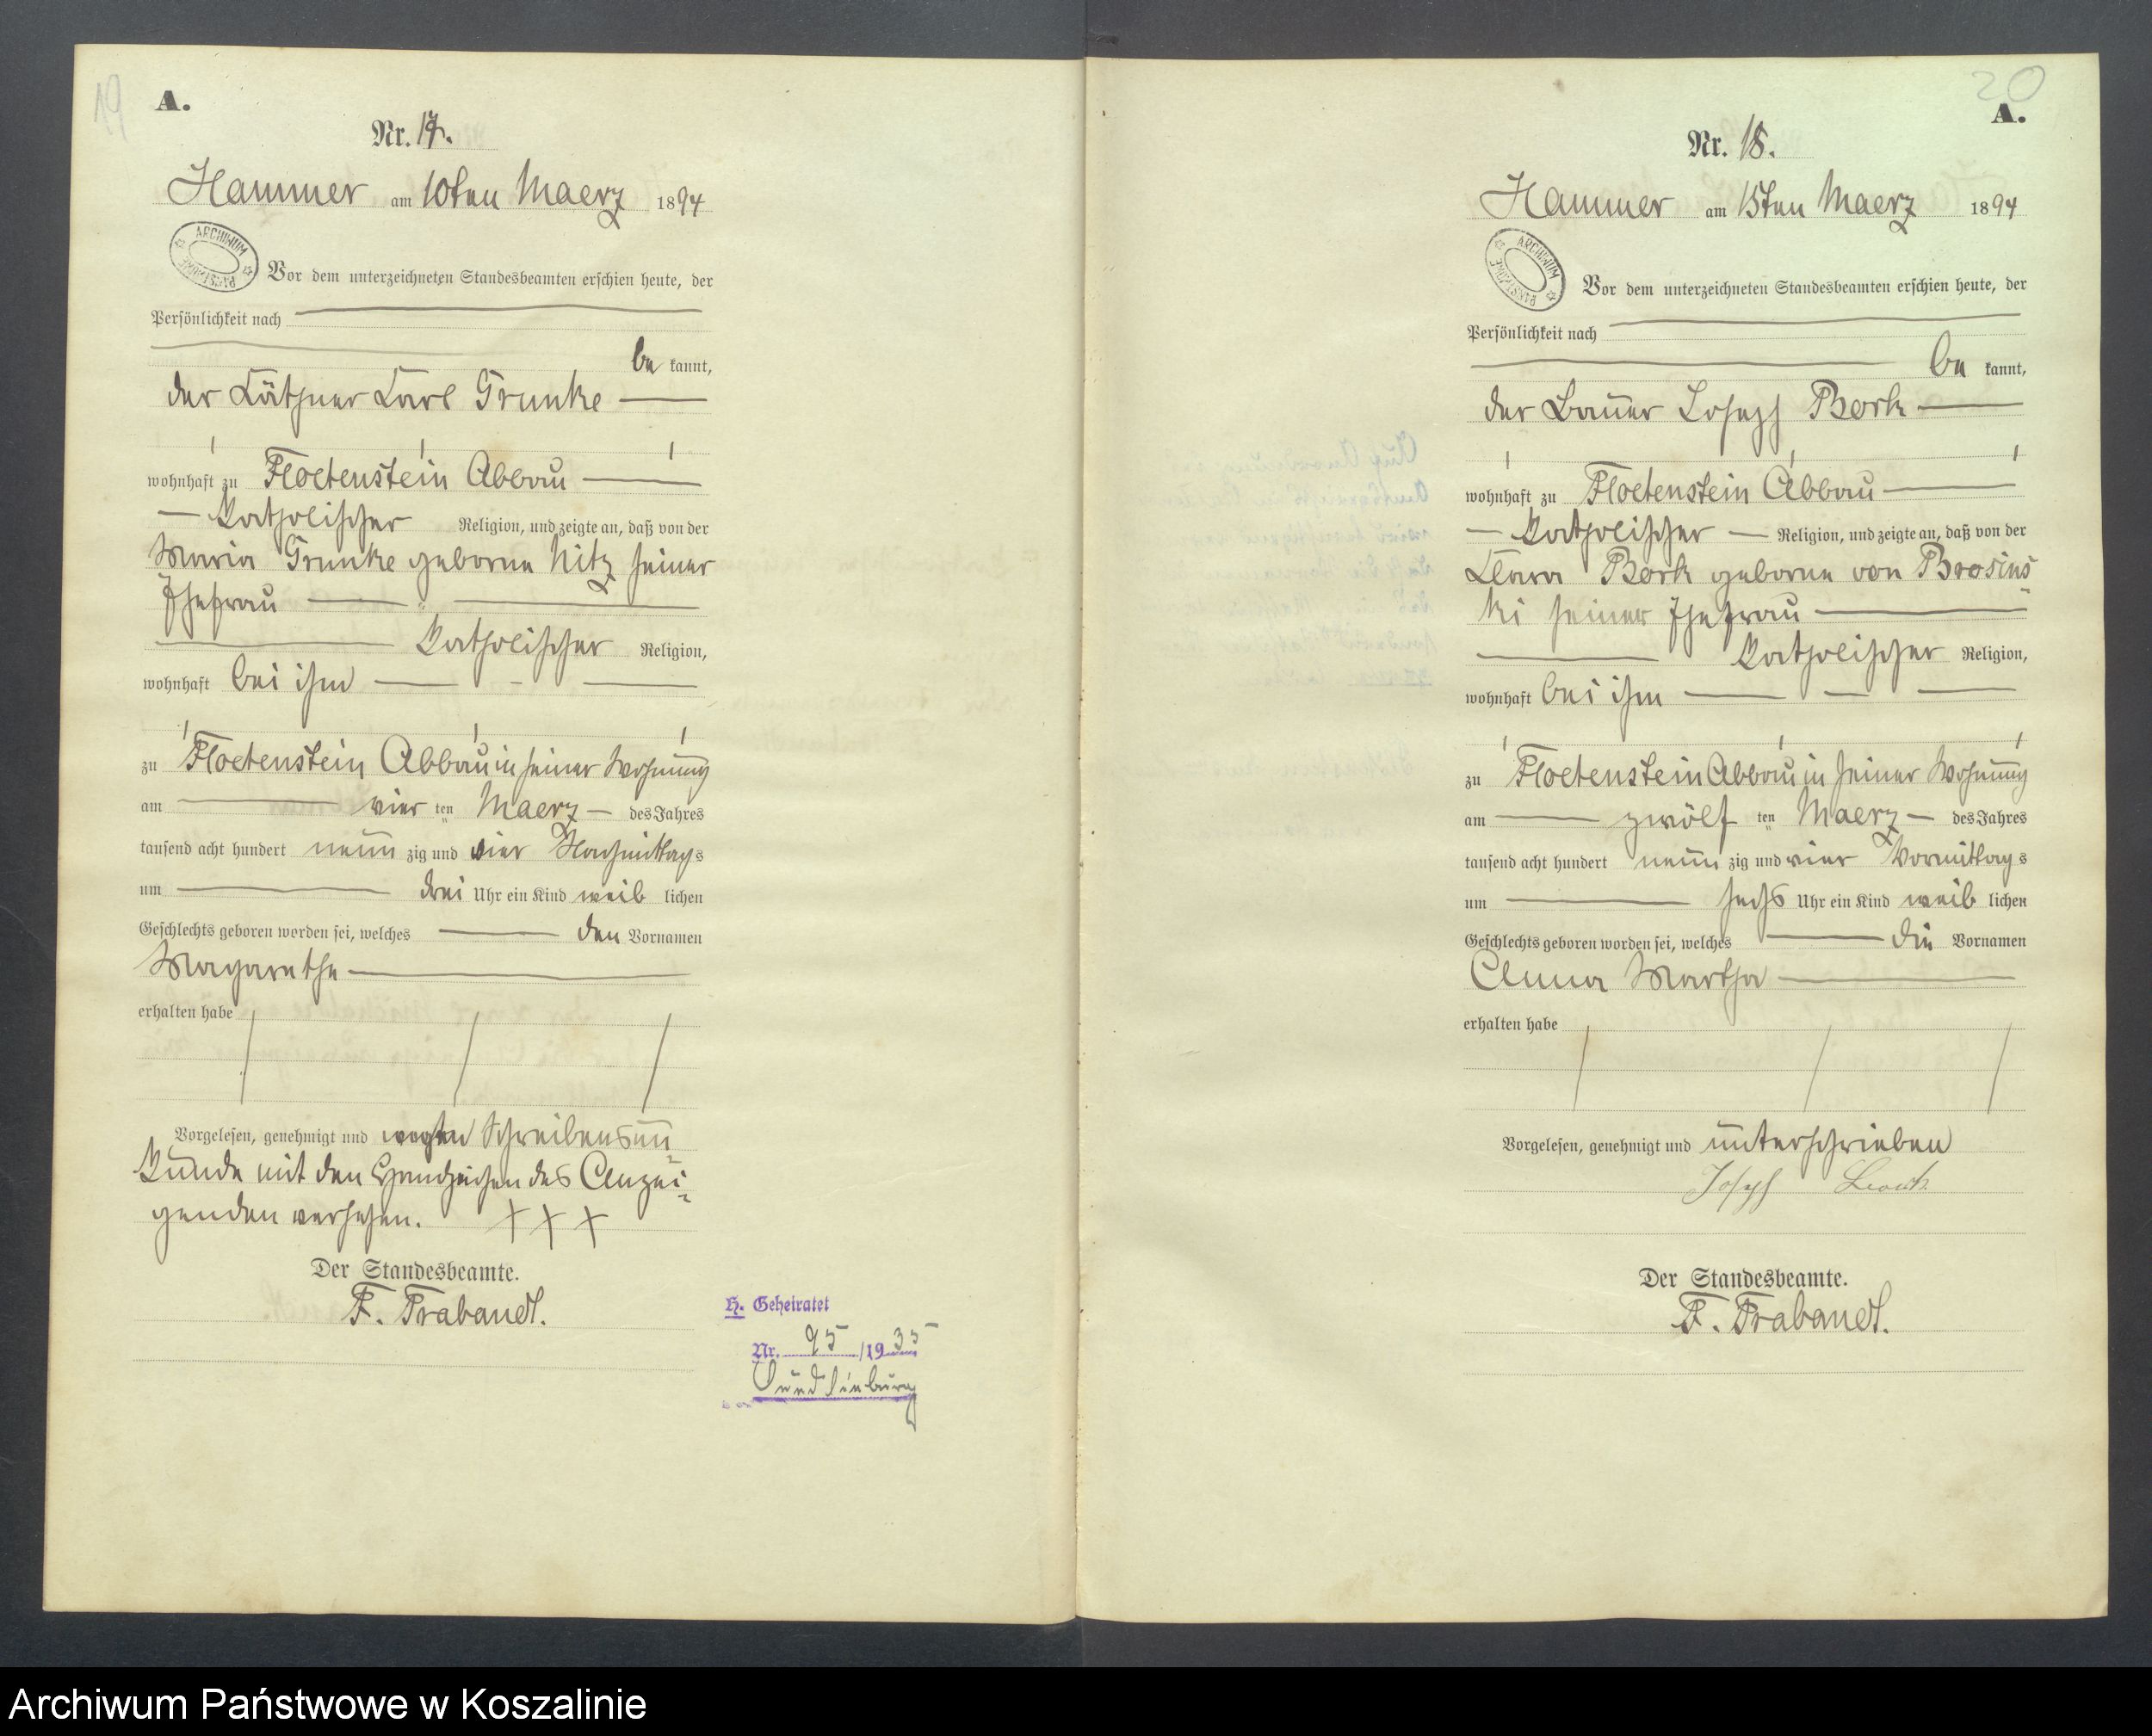 19
A.
Nr. 17.
Hammer am 10ten Maerz 1894
ARCHIWUM PAŃSTWOWE
Vor dem unterzeichneten Standesbeamten erschien heute, der
Persönlichkeit nach
be kannt,
der Käthner Karl Grunke
wohnhaft zu Floetenstein Abbau
Katholischer Religion, und zeigte an, daß von der
Maria Grunke geborne Nitz seiner
Ehefrau
Katholischer Religion,
wohnhaft bei ihm
zu Floetenstein Abbau in seiner Wohnung
am vier ten Maerz des Jahres
tausend acht hundert neun zig und vier Nachmittags
um drei Uhr ein Kind weib lichen
Geschlechts geboren worden sei, welches den Vornamen
Magarethe
erhalten habe
Vorgelesen, genehmigt und wegen Schreibensun
kunde mit den Handzeichen des Anzei-
genden versehen. + + +
Der Standesbeamte.
F. Trabandt.
H. Geheiratet
Nr. 95 /1935
20
A.
Nr. 18.
Hammer am 15ten Maerz 1894
ARCHIWUM PAŃSTWOWE
Vor dem unterzeichneten Standesbeamten erschien heute, der
Persönlichkeit nach
be kannt,
der Bauer Joseph Bork
wohnhaft zu Floetenstein Abbau
Katholischer Religion, und zeigte an, daß von der
Klara Bork geborne von Brosins-
ki seiner Ehefrau
Katholischer Religion,
wohnhaft bei ihm
zu Floetenstein Abbau in seiner Wohnung
am zwölf ten Maerz des Jahres
tausend acht hundert neun zig und vier Vormittags
um sechs Uhr ein Kind weib lichen
Geschlechts geboren worden sei, welches die Vornamen
Anna Martha
erhalten habe
Vorgelesen, genehmigt und unterschrieben
Joseph
Der Standesbeamte.
F. Trabandt.
Archiwum Państwowe w Koszalinie